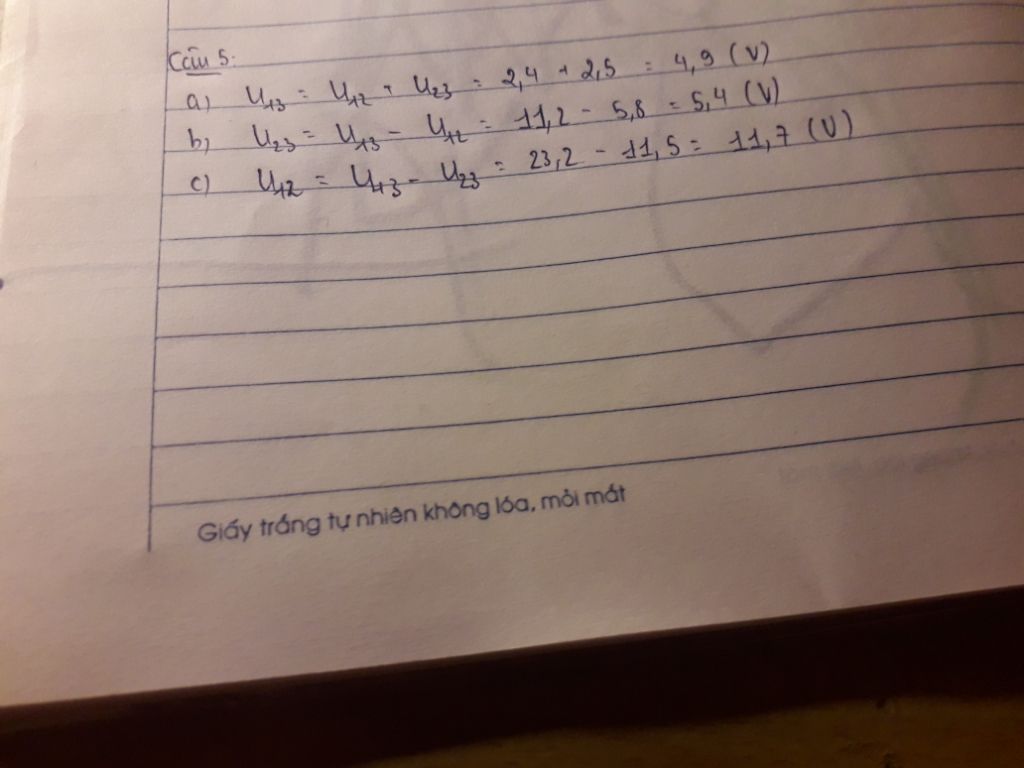 Câu 5:
a) U13 = U12 + U23 = 2,4 + 2,5 = 4,9 (V)
b) U23 = U13 - U12 = 11,2 - 5,8 = 5,4 (V)
c) U12 = U13 - U23 = 23,2 - 11,5 = 11,7 (V)
Giấy trắng tự nhiên không lóa, mỏi mắt